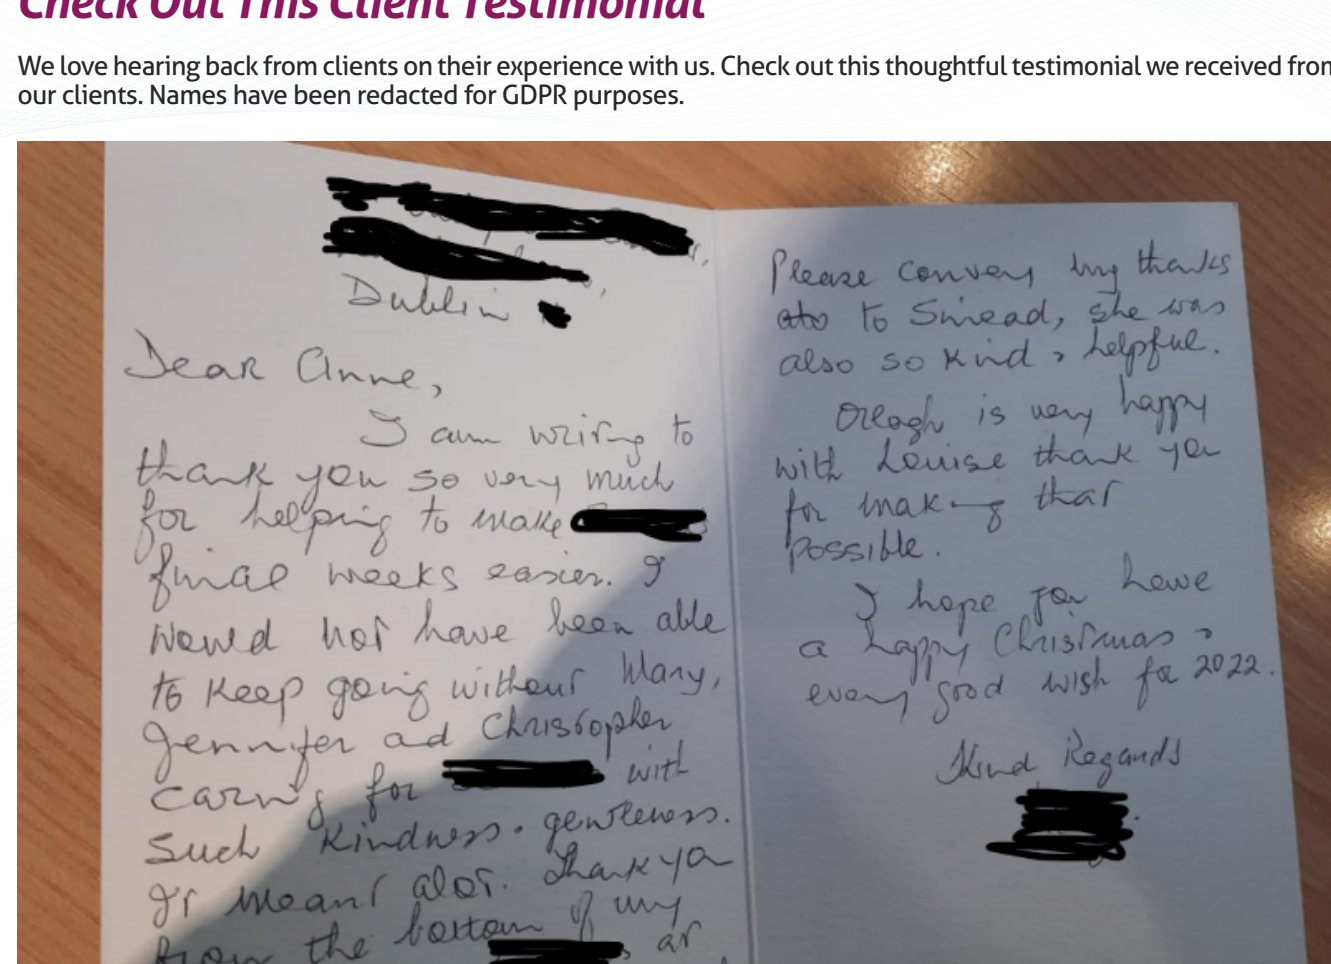 Check Out This Client Testimonial
We love hearing back from clients on their experience with us. Check out this thoughtful testimonial we received from
our clients. Names have been redacted for GDPR purposes.
Dublin
Dear Anne,
I am writing to
thank you so very much
for helping to make
final weeks easier. I
would not have been able
to keep going without Mary,
Jennifer ad Christopher
caring for with
such kindness + gentleness.
It meant alot. Thank you
from the bottom of my
, at
Please convey my thanks
to Sinead, she was
also so kind + helpful.
Orlagh is very happy
with Louise thank you
for making that
possible.
I hope you have
a happy Christmas +
every good wish for 2022.
Kind Regards